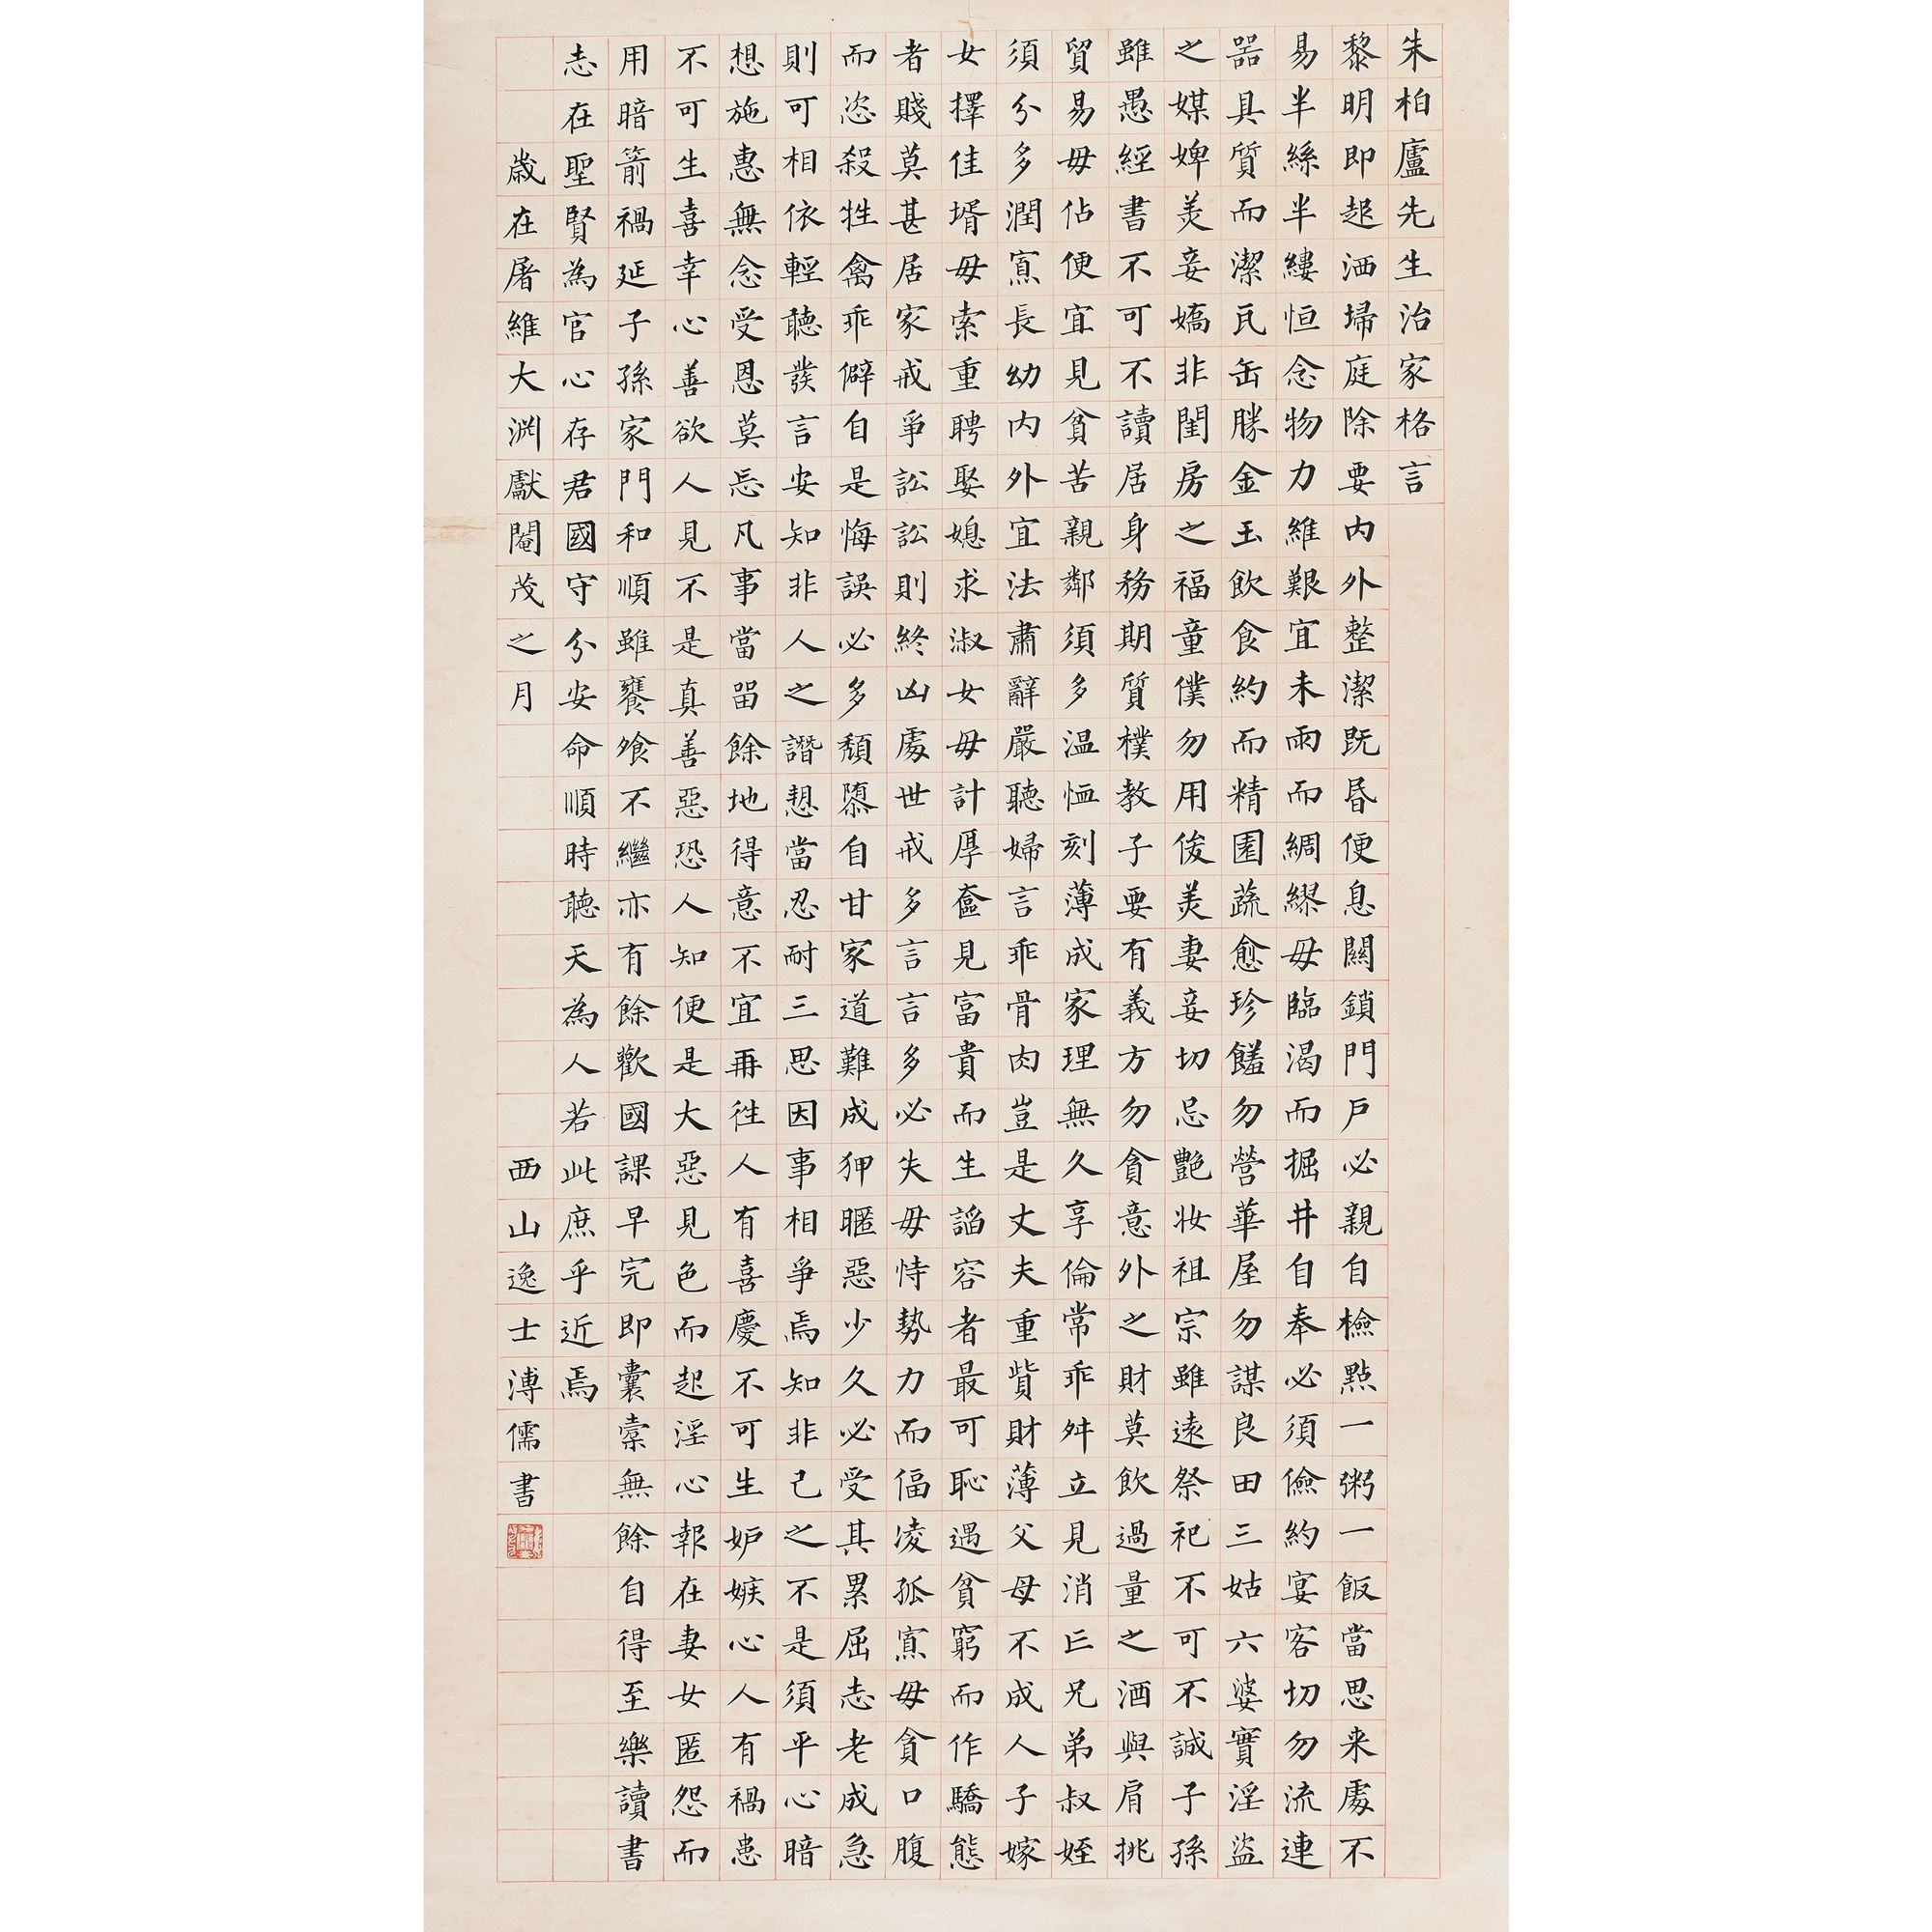 朱柏廬先生治家格言
黎明即起洒埽庭除要内外整潔既昏便息關鎖門戶必親自檢點一粥一飯當思来處不
易半絲半縷恒念物力維艱宜未雨而綢繆毋臨渴而掘井自奉必須儉約宴客切勿流連
器具質而潔瓦缶勝金玉飲食約而精園蔬愈珍饈勿營華屋勿謀良田三姑六婆實淫盜
之媒婢美妾嬌非閨房之福童僕勿用俊美妻妾切忌艷妝祖宗雖遠祭祀不可不誠子孫
雖愚經書不可不讀居身務期質樸教子要有義方勿貪意外之財莫飲過量之酒與肩挑
貿易毋佔便宜見貧苦親鄰須多温恤刻薄成家理無久享倫常乖舛立見消亡兄弟叔姪
須分多潤寡長幼内外宜法肅辭嚴聽婦言乖骨肉豈是丈夫重貲財薄父母不成人子嫁
女擇佳壻毋索重聘娶媳求淑女毋計厚奩見富貴而生諂容者最可恥遇貧窮而作驕態
者賤莫甚居家戒爭訟訟則終凶處世戒多言言多必失毋恃勢力而偪凌孤寡毋貪口腹
而恣殺牲禽乖僻自是悔誤必多頹隳自甘家道難成狎暱惡少久必受其累屈志老成急
則可相依輕聽發言安知非人之譖愬當忍耐三思因事相爭焉知非己之不是須平心暗
想施惠無念受恩莫忘凡事當留餘地得意不宜再往人有喜慶不可生妒嫉心人有禍患
不可生喜幸心善欲人見不是真善惡恐人知便是大惡見色而起淫心報在妻女匿怨而
用暗箭禍延子孫家門和順雖饔飧不繼亦有餘歡國課早完即囊橐無餘自得至樂讀書
志在聖賢為官心存君國守分安命順時聽天為人若此庶乎近焉
歲在屠維大淵獻閹茂之月
西山逸士溥儒書